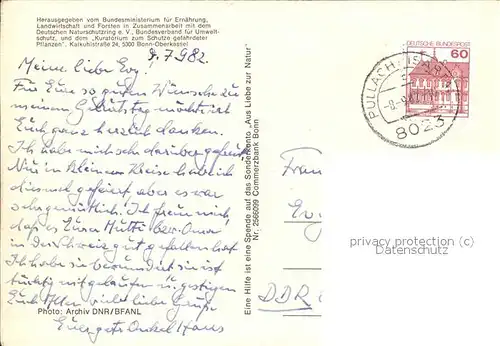 Herausgegeben vom Bundesministerium für Ernährung,
Landwirtschaft und Forsten in Zusammenarbeit mit dem
Deutschen Naturschutzring e. V., Bundesverband für Umwelt-
schutz, und dem „Kuratorium zum Schutze gefährdeter
Pflanzen", Kalkuhlstraße 24, 5300 Bonn-Oberkassel
9.7.1982.
Meine liebe Evy!
Für Eure so guten Wünsche zu
meinem Geburtstag möchte ich
Euch ganz herzlich danken.
Ich habe mich sehr darüber gefreut.
Nur im kleinen Kreise habe ich
diesmal gefeiert aber es war
sehr gemütlich. Ich freue mich,
daß es Eurer Mutti bzw. Oma
in der Schweiz gut gefallen hat.
Ich habe sie bewundert sie ist
tüchtig mit gelaufen u. gestiegen
Euch Allen viele liebe Grüße
Euer guter Onkel Hans
Photo: Archiv DNR/BFANL
Eine Hilfe ist eine Spende auf das Sonderkonto „Aus Liebe zur Natur"
Nr. 2566099 Commerzbank Bonn
DEUTSCHE BUNDESPOST
60
PULLACH i. ISARTAL
8023
DDR
privacy protection watermark
www.ansichtskarten-center.de